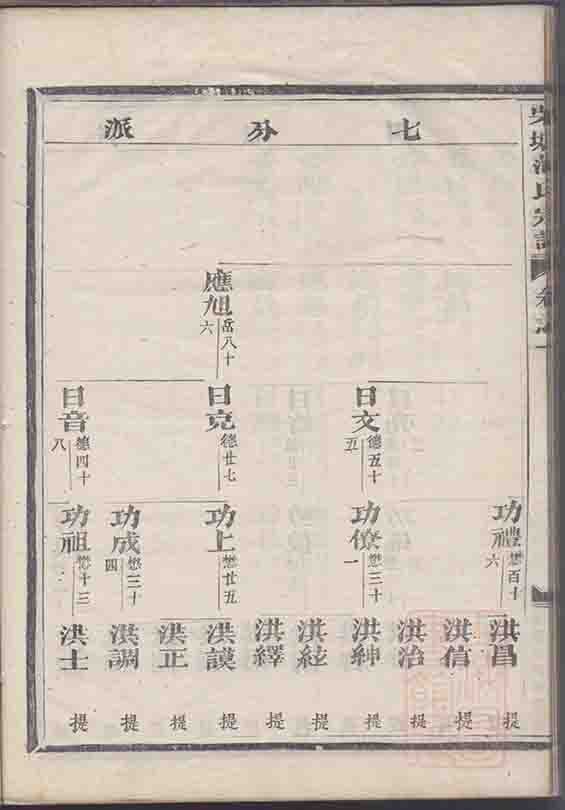 七分派
應旭 岳八十六
日文 德五十五
日克 德廿七
日音 德四十八
功禮 懋百十六
功僚 懋三十一
功上 懋廿五
功成 懋三十四
功祖 懋十三
淇昌 提
淇信 提
淇治 提
淇紳 提
淇絃 提
淇繹 提
淇謨 提
淇正 提
淇調 提
淇士 提